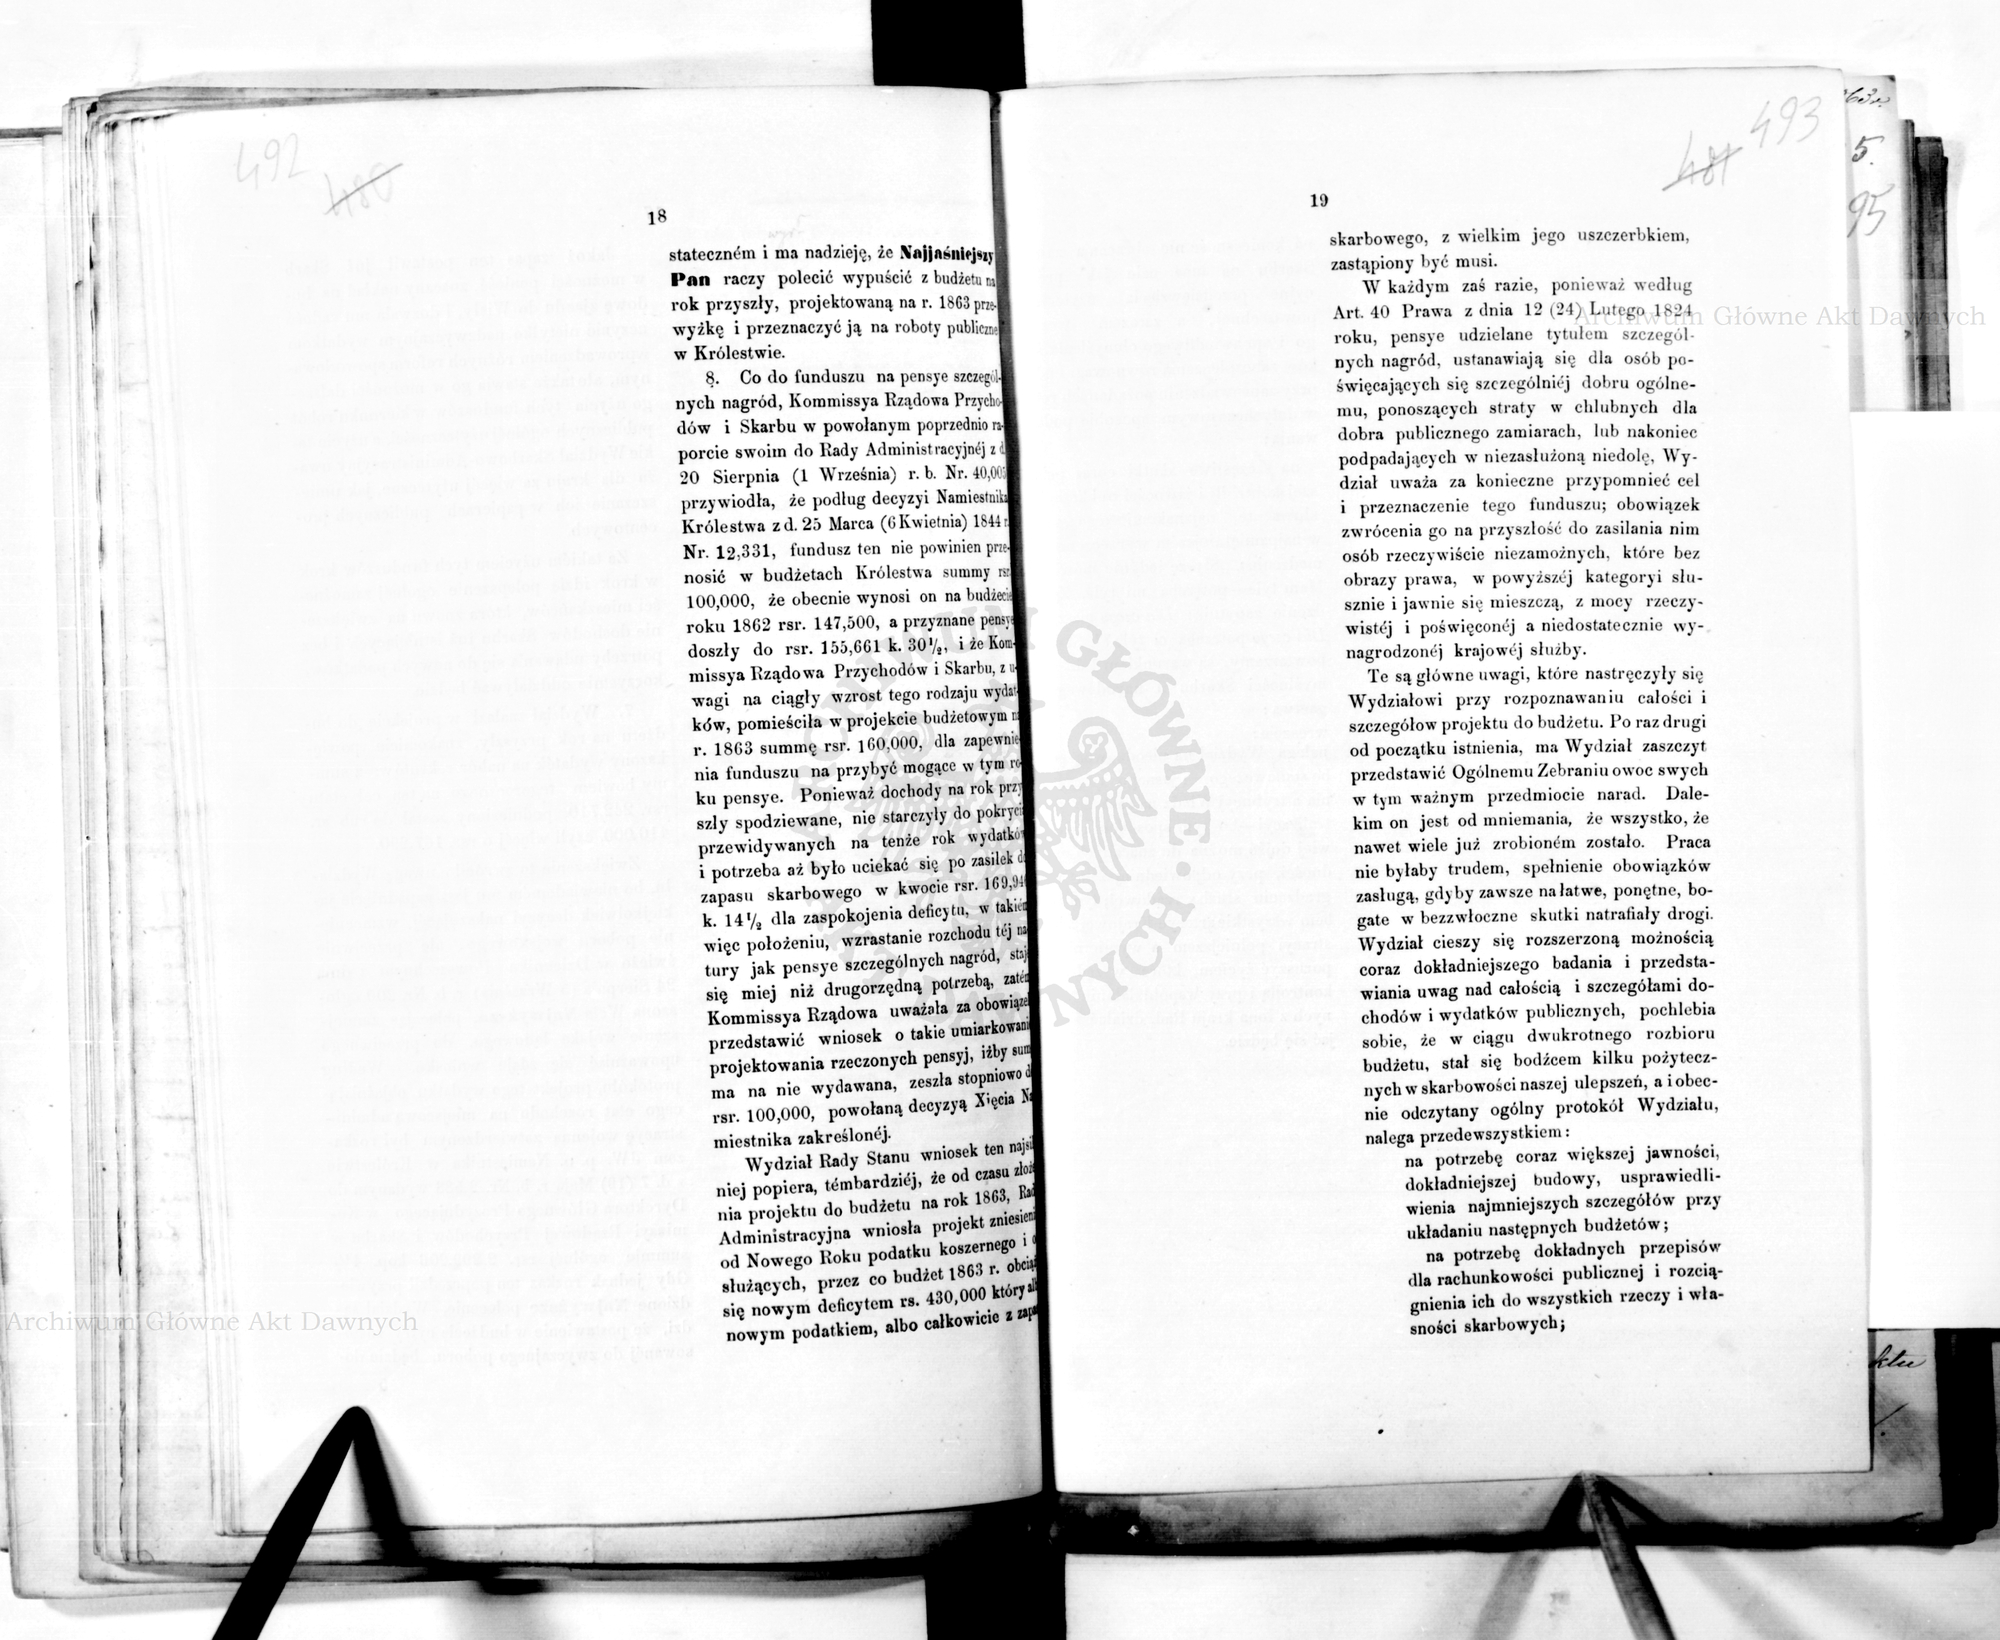 492
480
18
stateczném i ma nadzieję, że Najjaśniejszy
Pan raczy polecić wypuścić z budżetu na
rok przyszły, projektowaną na r. 1863 prze-
wyżkę i przeznaczyć ją na roboty publiczne
w Królestwie.
8. Co do funduszu na pensye szczegól-
nych nagród, Kommissya Rządowa Przycho-
dów i Skarbu w powołanym poprzednio ra-
porcie swoim do Rady Administracyjnéj z d.
20 Sierpnia (1 Września) r. b. Nr. 40,005
przywiodła, że podług decyzyi Namiestnika
Królestwa z d. 25 Marca (6 Kwietnia) 1844 r.
Nr. 12,331, fundusz ten nie powinien prze-
nosić w budżetach Królestwa summy rsr.
100,000, że obecnie wynosi on na budżecie
roku 1862 rsr. 147,500, a przyznane pensye
doszły do rsr. 155,661 k. 30½, i że Kom-
missya Rządowa Przychodów i Skarbu, z u-
wagi na ciągły wzrost tego rodzaju wydat-
ków, pomieściła w projekcie budżetowym na
r. 1863 summę rsr. 160,000, dla zapewnie-
nia funduszu na przybyć mogące w tym ro-
ku pensye. Ponieważ dochody na rok przy
szły spodziewane, nie starczyły do pokrycia
przewidywanych na tenże rok wydatków
i potrzeba aż było uciekać się po zasiłek do
zapasu skarbowego w kwocie rsr. 169,94
k. 14½ dla zaspokojenia deficytu, w takiém
więc położeniu, wzrastanie rozchodu téj na-
tury jak pensye szczególnych nagród, staje
się miej niż drugorzędną potrzebą, zatém
Kommissya Rządowa uważała za obowiązek
przedstawić wniosek o takie umiarkowanie
projektowania rzeczonych pensyj, iżby sum
ma na nie wydawana, zeszła stopniowo do
rsr. 100,000, powołaną decyzyą Xięcia Na
miestnika zakreślonéj.
Wydział Rady Stanu wniosek ten najsil
niej popiera, témbardziéj, że od czasu złoże
nia projektu do budżetu na rok 1863, Rada
Administracyjna wniosła projekt zniesienia
od Nowego Roku podatku koszernego i o
służących, przez co budżet 1863 r. obciąż
się nowym deficytem rs. 430,000 który alb
nowym podatkiem, albo całkowicie z zapa
493
481
19
skarbowego, z wielkim jego uszczerbkiem,
zastąpiony być musi.
W każdym zaś razie, ponieważ według
Art. 40 Prawa z dnia 12 (24) Lutego 1824
roku, pensye udzielane tytułem szczegól-
nych nagród, ustanawiają się dla osób po-
święcających się szczególniéj dobru ogólne-
mu, ponoszących straty w chlubnych dla
dobra publicznego zamiarach, lub nakoniec
podpadających w niezasłużoną niedolę, Wy-
dział uważa za konieczne przypomnieć cel
i przeznaczenie tego funduszu; obowiązek
zwrócenia go na przyszłość do zasilania nim
osób rzeczywiście niezamożnych, które bez
obrazy prawa, w powyższéj kategoryi słu-
sznie i jawnie się mieszczą, z mocy rzeczy-
wistéj i poświęconéj a niedostatecznie wy-
nagrodzonéj krajowéj służby.
Te są główne uwagi, które nastręczyły się
Wydziałowi przy rozpoznawaniu całości i
szczegółow projektu do budżetu. Po raz drugi
od początku istnienia, ma Wydział zaszczyt
przedstawić Ogólnemu Zebraniu owoc swych
w tym ważnym przedmiocie narad. Dale-
kim on jest od mniemania, że wszystko, że
nawet wiele już zrobioném zostało. Praca
nie byłaby trudem, spełnienie obowiązków
zasługą, gdyby zawsze na łatwe, ponętne, bo-
gate w bezzwłoczne skutki natrafiały drogi.
Wydział cieszy się rozszerzoną możnością
coraz dokładniejszego badania i przedsta-
wiania uwag nad całością i szczegółami do-
chodów i wydatków publicznych, pochlebia
sobie, że w ciągu dwukrotnego rozbioru
budżetu, stał się bodźcem kilku pożytecz-
nych w skarbowości naszej ulepszeń, a i obec-
nie odczytany ogólny protokół Wydziału,
nalega przedewszystkiem:
na potrzebę coraz większej jawności,
dokładniejszej budowy, usprawiedli-
wienia najmniejszych szczegółów przy
układaniu następnych budżetów;
na potrzebę dokładnych przepisów
dla rachunkowości publicznej i rozcią-
gnienia ich do wszystkich rzeczy i wła-
sności skarbowych;
5.
95
ktu
Archiwum Główne Akt Dawnych
Archiwum Główne Akt Dawnych
ARCHIWUM GŁÓWNE AKT DAWNYCH